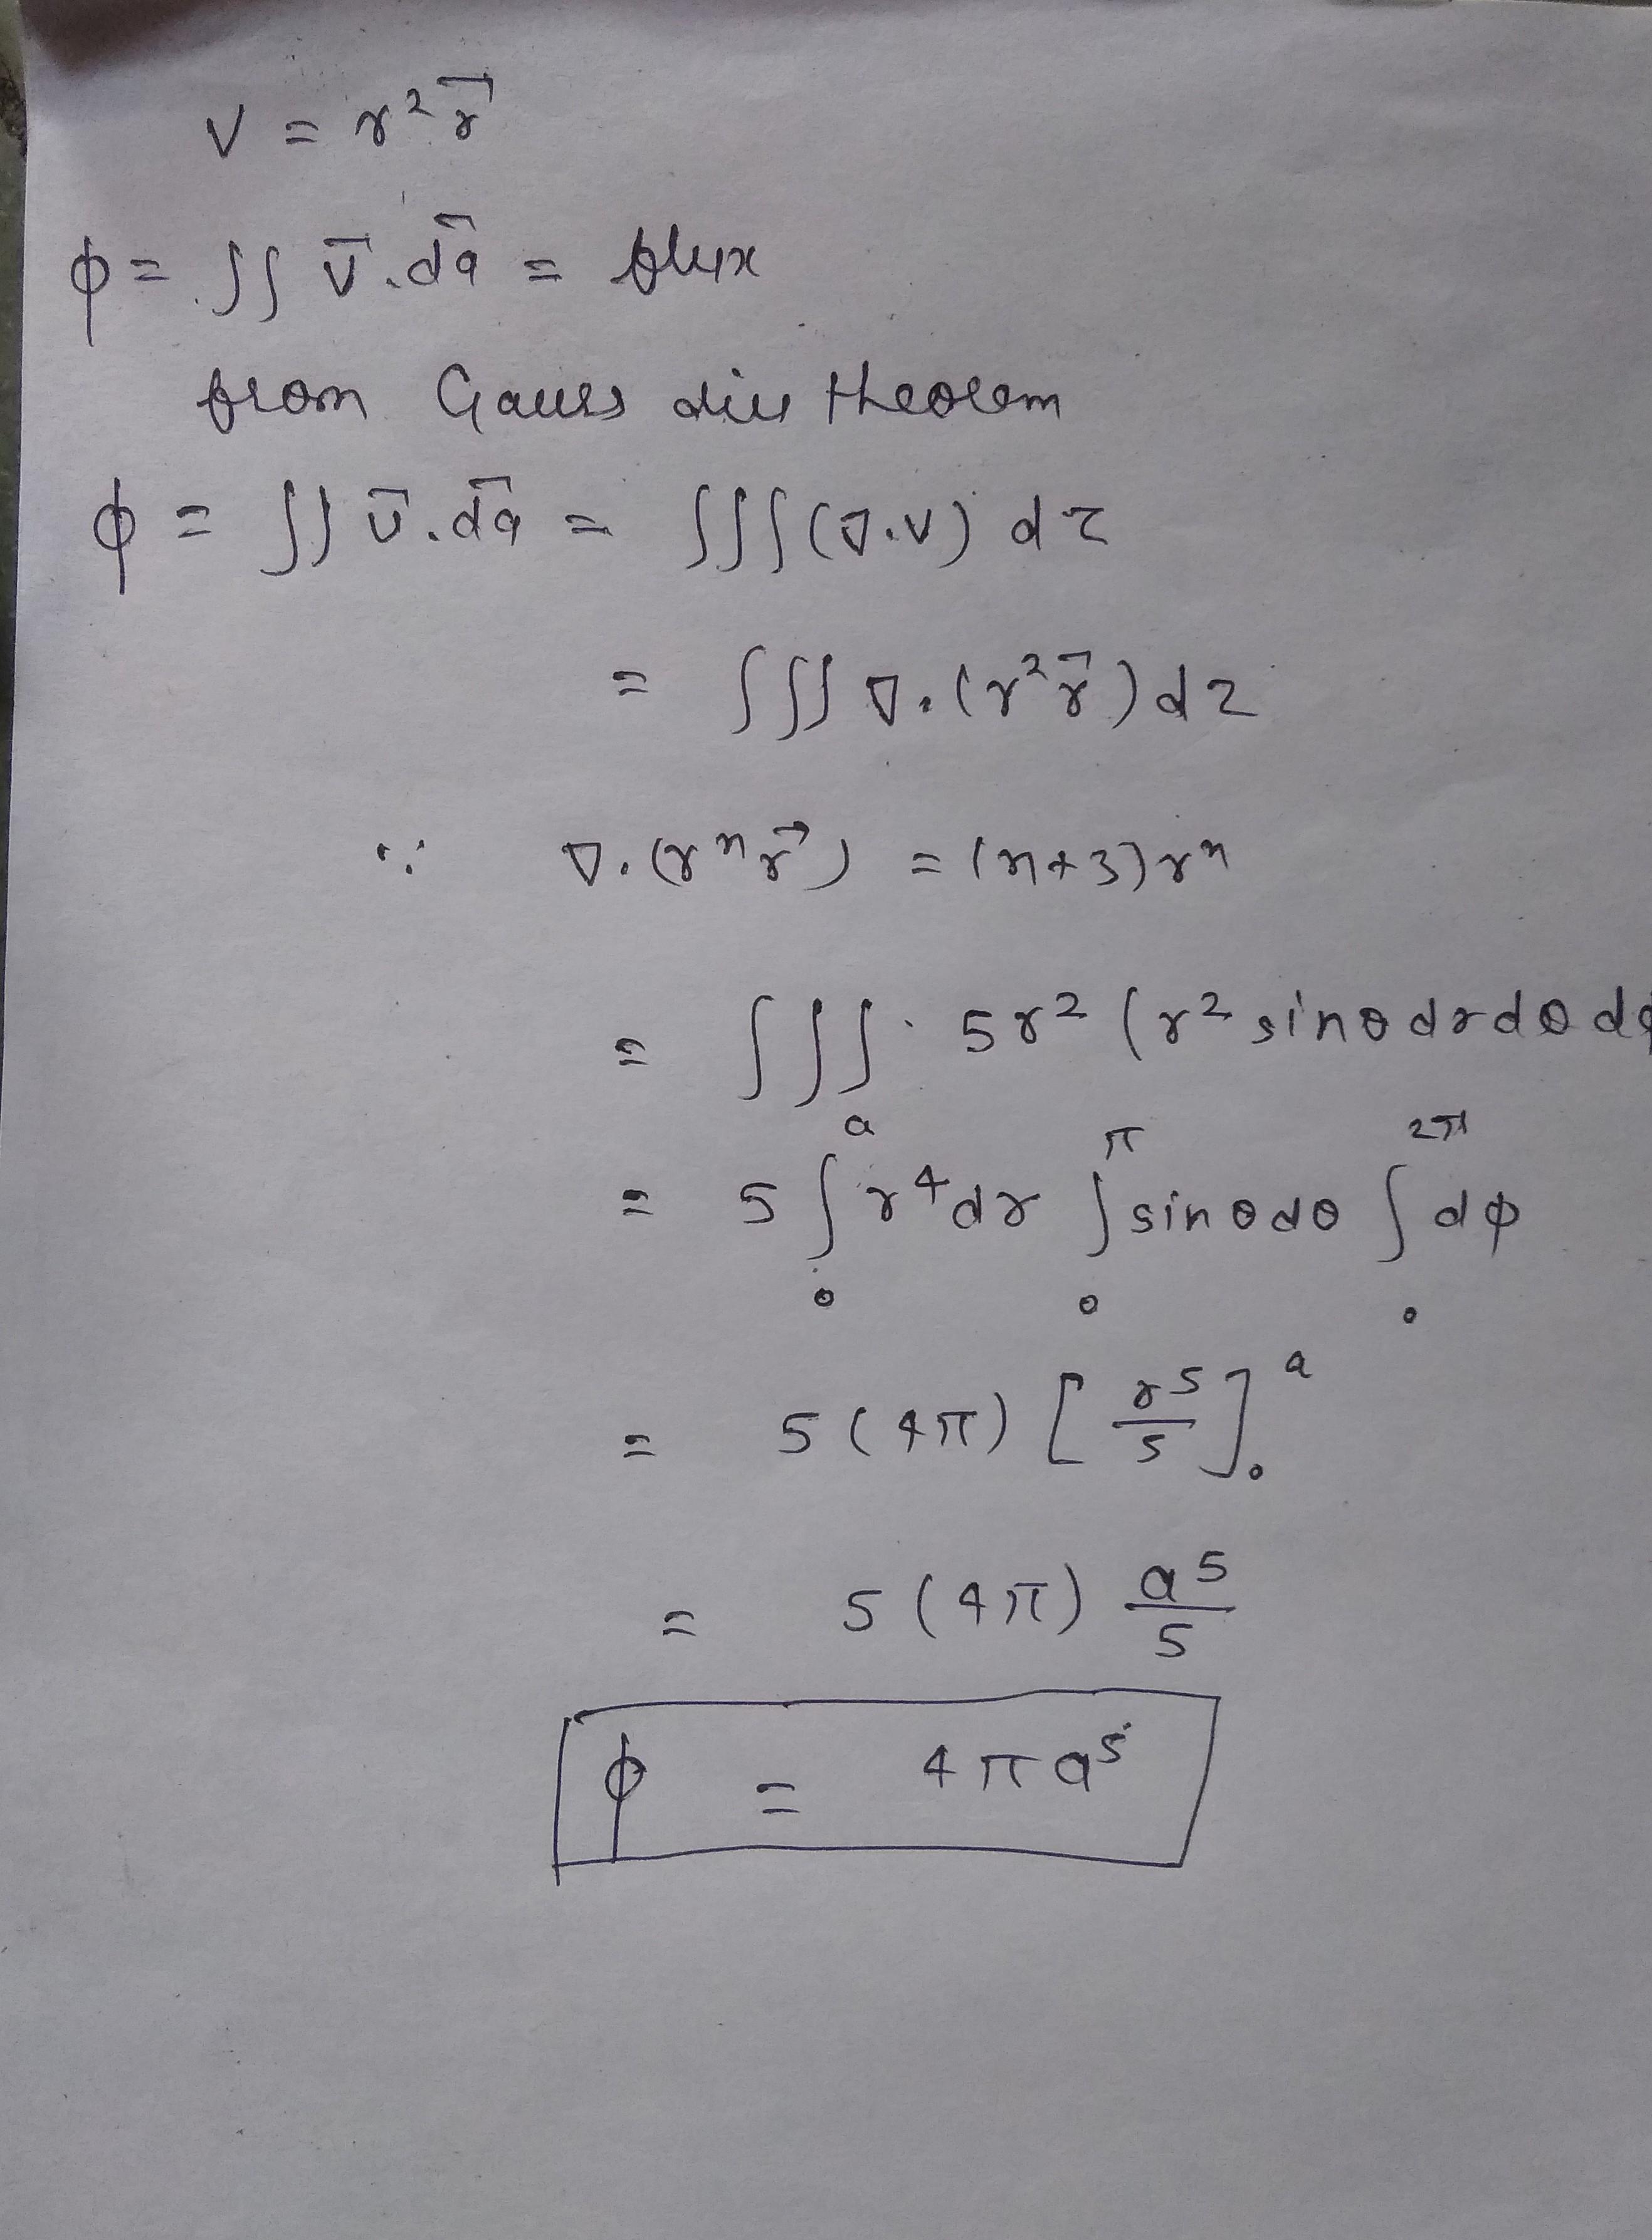 V = r² r⃗
ϕ = ∫∫ v̄ . dā = flux
from Gauss div theorem
ϕ = ∫∫ v̄ . dā = ∫∫∫ (∇.v) dτ
= ∫∫∫ ∇.(r² r⃗) dτ
∵ ∇.(rⁿ r⃗) = (n+3) rⁿ
= ∫∫∫ 5r² (r² sinθ dr dθ dϕ
= 5 ∫₀ᵃ r⁴ dr ∫₀^π sinθ dθ ∫₀^2π dϕ
= 5 (4π) [r⁵/5]₀ᵃ
= 5 (4π) a⁵/5
ϕ = 4πa⁵